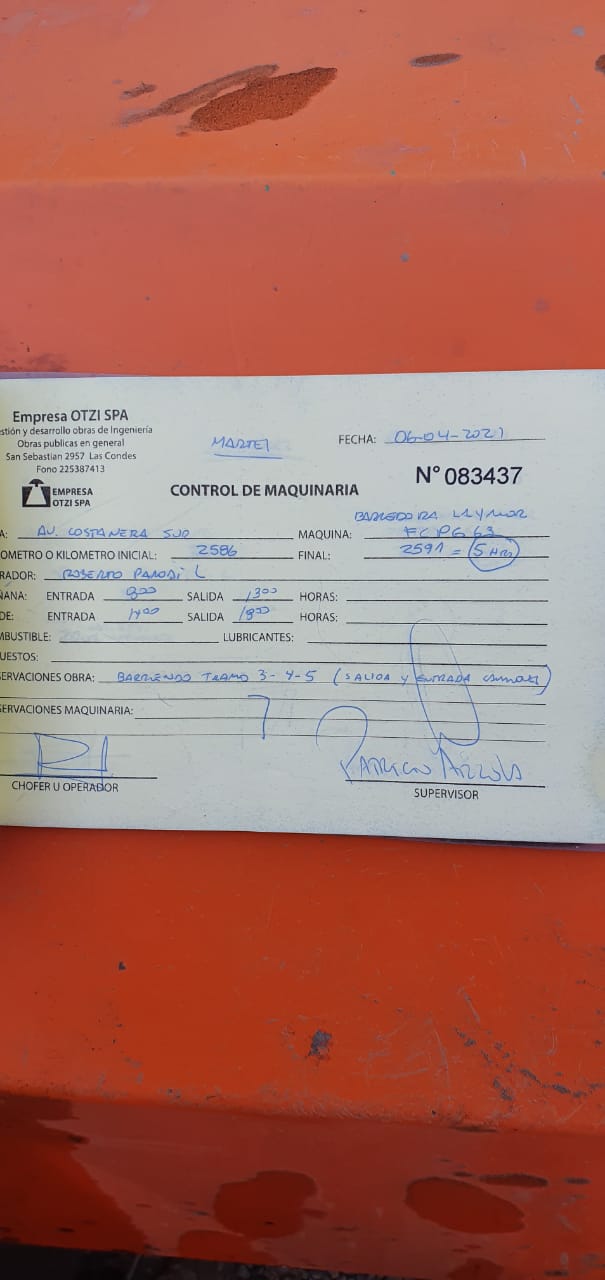 Empresa OTZI SPA
stión y desarrollo obras de Ingeniería
Obras publicas en general
San Sebastian 2957 Las Condes
Fono 225387413
EMPRESA
OTZI SPA
MARTES
FECHA: 06-04-2021
N° 083437
CONTROL DE MAQUINARIA
BARREDORA LAYMOR
A: AV. COSTANERA SUR MAQUINA: FCPG 63
OMETRO O KILOMETRO INICIAL: 2586 FINAL: 2591 = 5 HRS
RADOR: ROBERTO PARODI L
ÑANA: ENTRADA 800 SALIDA 1300 HORAS:
DE: ENTRADA 1400 SALIDA 1800 HORAS:
MBUSTIBLE: LUBRICANTES:
UESTOS:
SERVACIONES OBRA: BARRIENDO TRAMO 3-4-5 (SALIDA Y ENTRADA
SERVACIONES MAQUINARIA:
PATRICIO
CHOFER U OPERADOR
SUPERVISOR